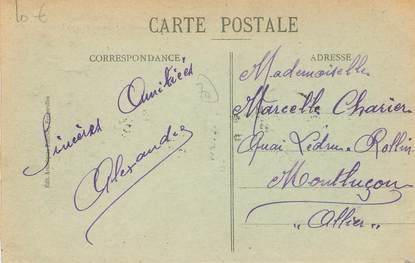 10 €
CARTE POSTALE
CORRESPONDANCE
Sincères Amitiés
Alexandre
ADRESSE
Mademoiselle
Marcelle Charier
Quai Lédru-Rollin
Montluçon
"Allier"